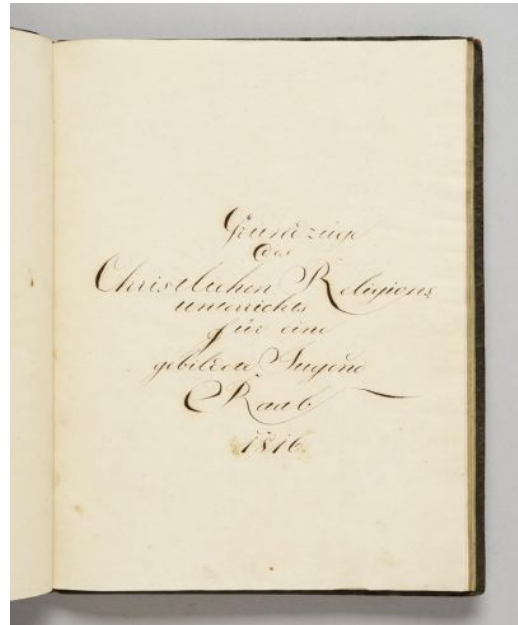 Grundzüge
des
Christlichen Religions
unterrichts
für eine
gebildete Jugend
Raab
1816.